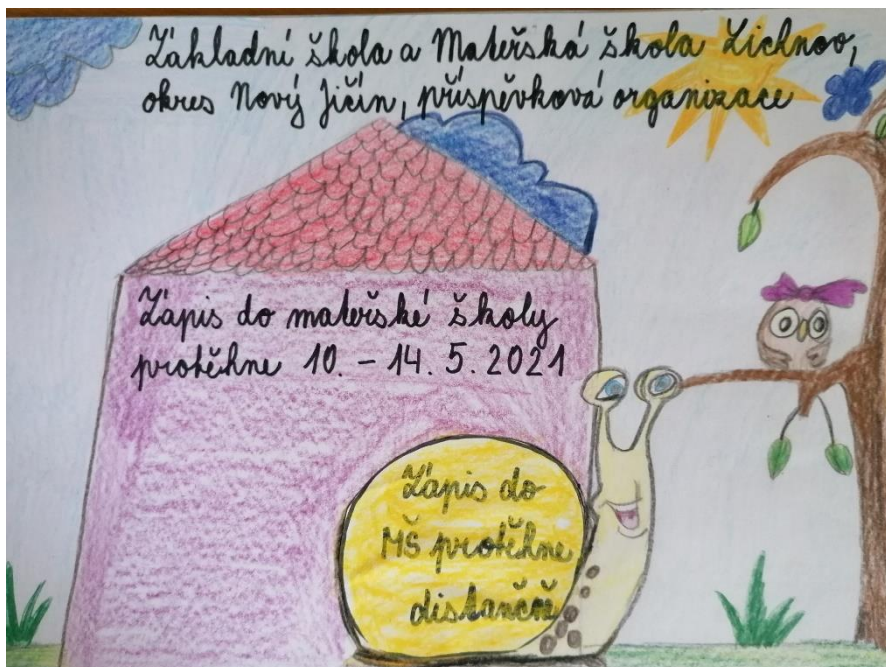 Základní škola a Mateřská škola Lichnov,
okres Nový Jičín, příspěvková organizace
Zápis do mateřské školy
proběhne 10. – 14. 5. 2021
Zápis do
MŠ proběhne
distančně